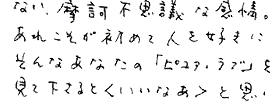 ない、摩訶不思議な感情。
あれこそが初めて人を好きに
そんなあなたの「ピュア・ラブ」を
見て下さると＜いいなあ＞と思い